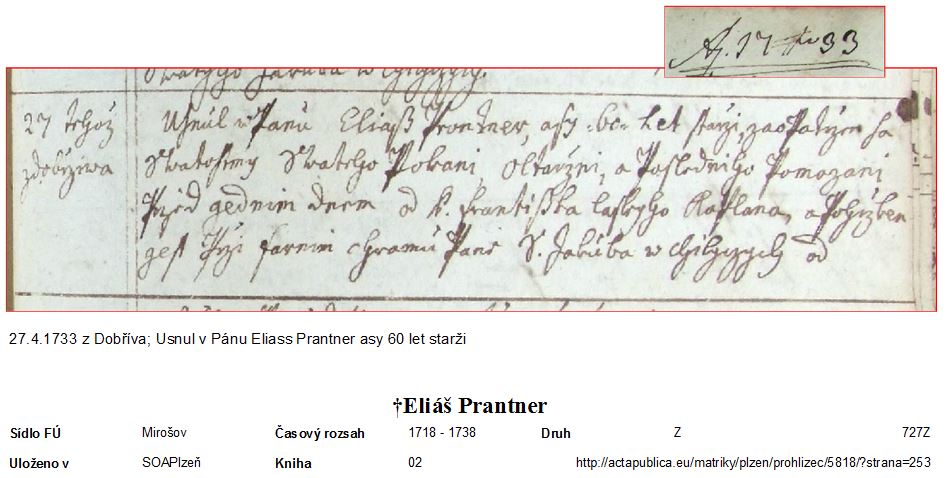 A. 1733
Swatyho Jakuba w Chilyzych.
27 tehoz Usnul w Panu Eliass Prontner, asy 60 Let starzi, zaopatrzen sa
zdobrziwa Swatostmy Swateho Pokani, Oltarzni, a Posledniho Pomazani
Przed gednim dnem od K. Frantisska Kaplana, a Pohrzben
gest Przi farnim chramu Pane S. Jakuba w od
27.4.1733 z Dobříva; Usnul v Pánu Eliass Prantner asy 60 let starži
†Eliáš Prantner
Sídlo FÚ Mirošov Časový rozsah 1718 - 1738 Druh Z 727Z
Uloženo v SOAPlzeň Kniha 02 http://actapublica.eu/matriky/plzen/prohlizec/5818/?strana=253